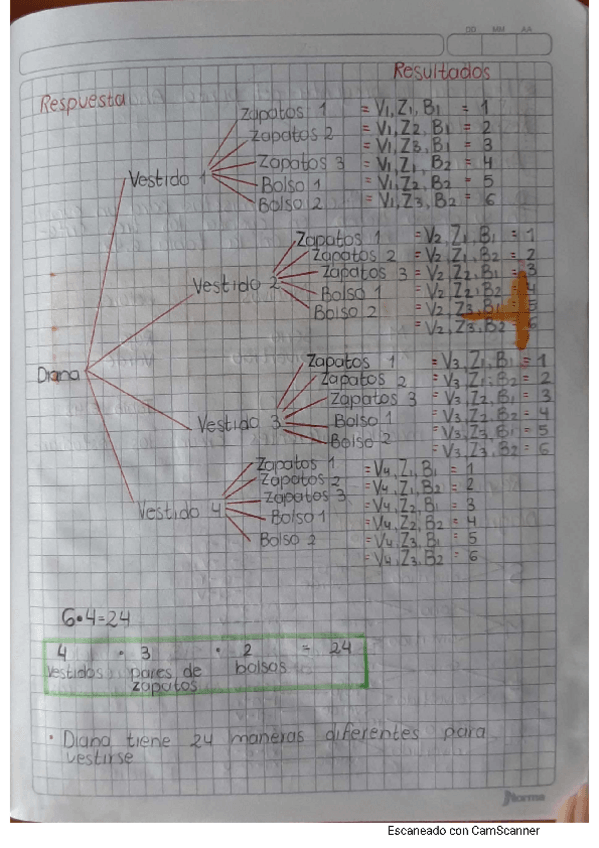 DD MM AA
Resultados
Respuesta
Zapatos 1 = V1, Z1, B1 = 1
Zapatos 2 = V1, Z2, B1 = 2
= V1, Z3, B1 = 3
Vestido 1 Zapatos 3 = V1, Z1, B2 = 4
Bolso 1 = V1, Z2, B2 = 5
Bolso 2 = V1, Z3, B2 = 6
Zapatos 1 = V2, Z1, B1 = 1
Zapatos 2 = V2, Z1, B2 = 2
Vestido 2 Zapatos 3 = V2, Z2, B1 = 3
Bolso 1 = V2, Z2, B2 = 4
Bolso 2 = V2, Z3, B1 = 5
= V2, Z3, B2 = 6
Diana
Zapatos 1 = V3, Z1, B1 = 1
Zapatos 2 = V3, Z1, B2 = 2
Zapatos 3 = V3, Z2, B1 = 3
Vestido 3 Bolso 1 = V3, Z2, B2 = 4
Bolso 2 = V3, Z3, B1 = 5
= V3, Z3, B2 = 6
Zapatos 1 = V4, Z1, B1 = 1
Zapatos 2 = V4, Z1, B2 = 2
Zapatos 3 = V4, Z2, B1 = 3
Vestido 4 Bolso 1 = V4, Z2, B2 = 4
Bolso 2 = V4, Z3, B1 = 5
= V4, Z3, B2 = 6
6•4=24
4 • 3 • 2 = 24
vestidos pares de bolsos
zapatos
• Diana tiene 24 maneras diferentes para
vestirse
Norma
Escaneado con CamScanner